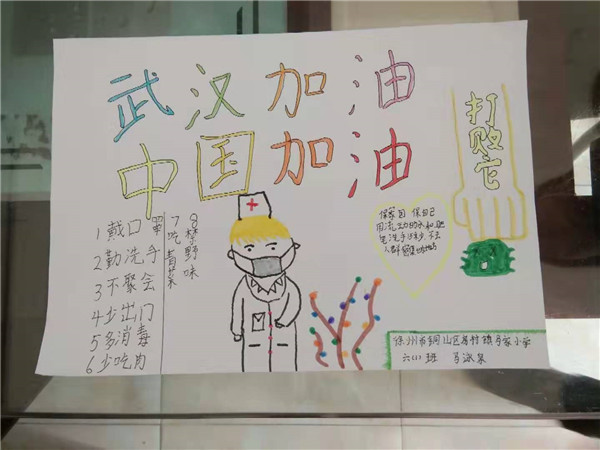 武汉加油
中国加油
打败它
1戴口罩
2勤洗手
3不聚会
4少出门
5多消毒
6少吃肉
7吃青菜
8禁野味
保家国 保自己
用流动的水和肥
皂洗手15秒,不去
人群密集的地方
徐州市铜山区房村镇马家小学
六(1)班